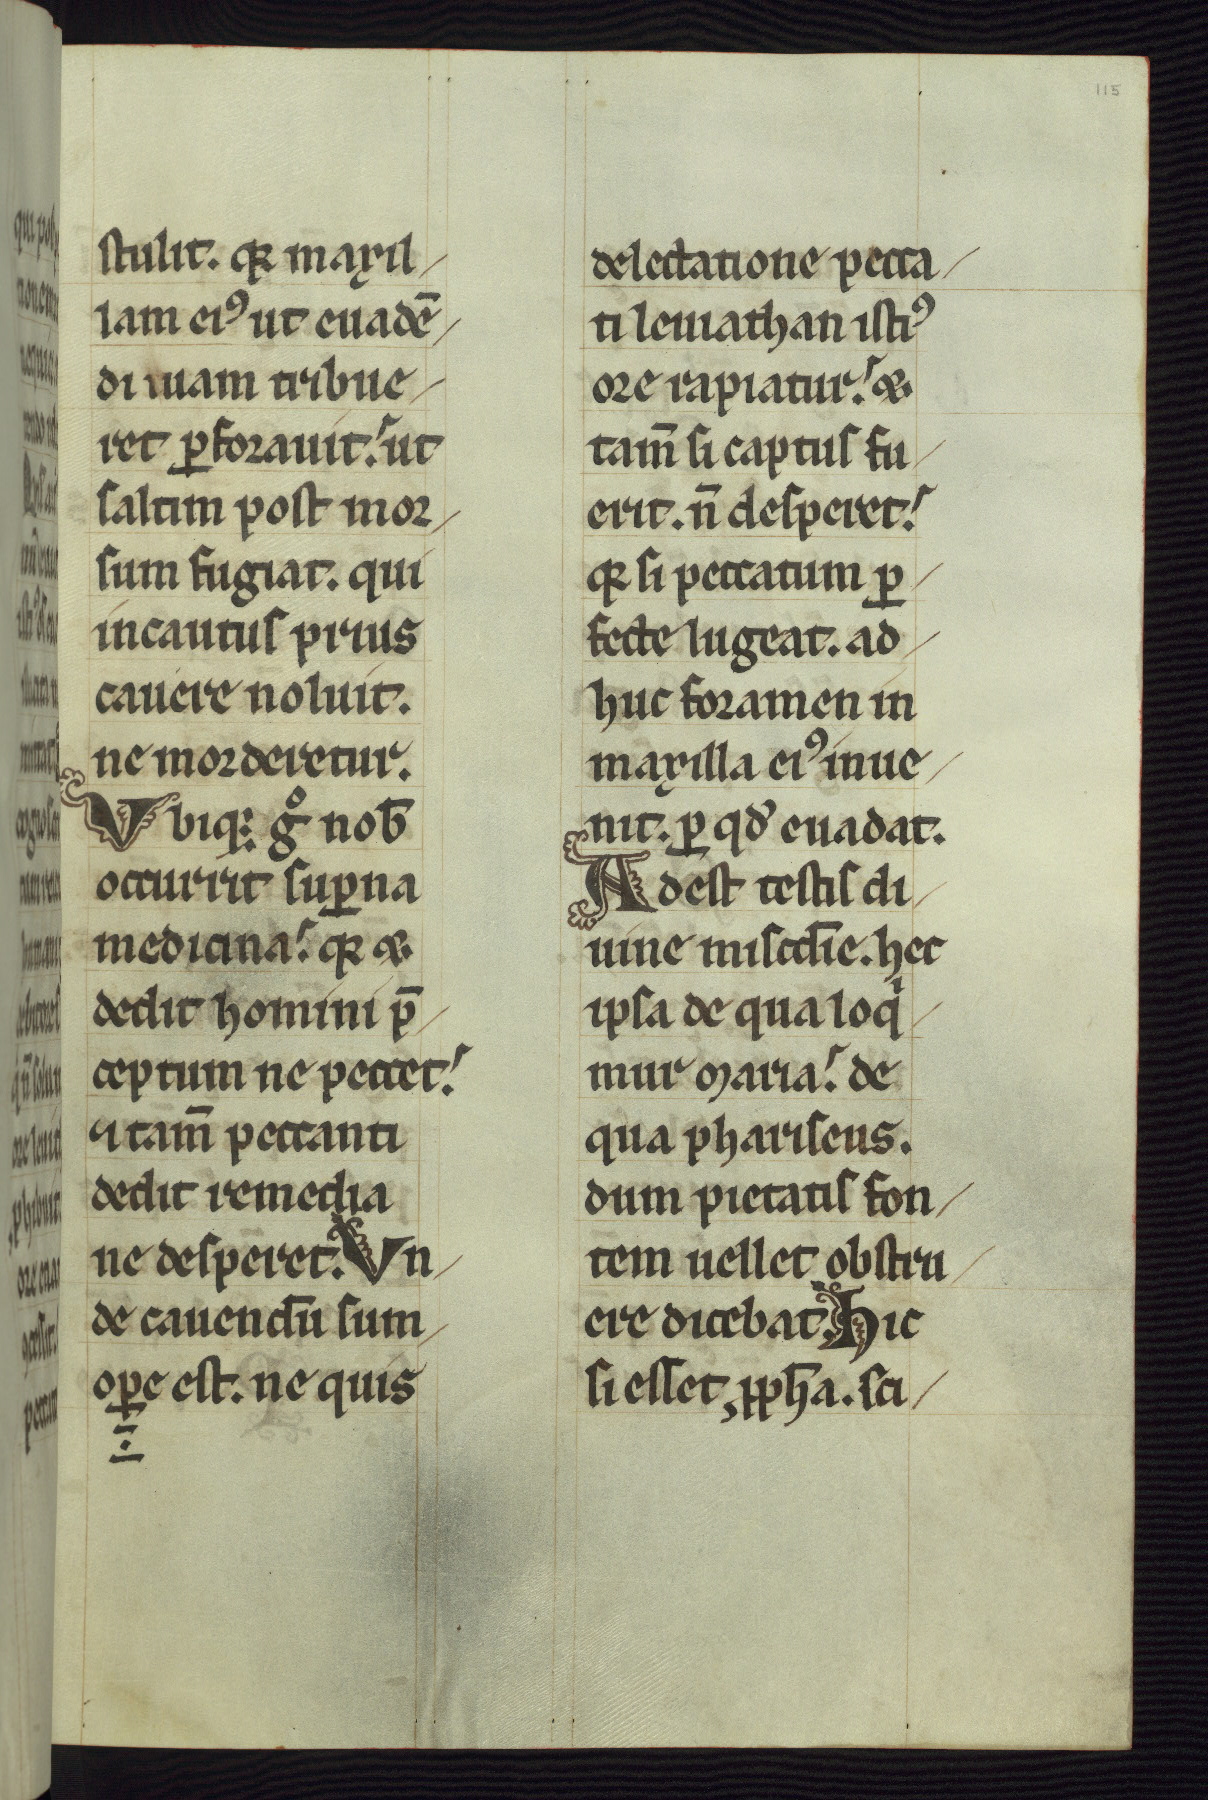 115
stulit. qꝛ maxil/
lam eiꝰ ut euadē/
di uiam tribue/
ret ꝑforauit. ut
saltim post mor/
sum fugiat. qui
incautus prius
cauere noluit.
ne morderetur.
Vbiq; gͦ nob̄
occurrit suꝑna
medicina. qꝛ &
dedit homini p̄/
ceptum ne peccet.
& tam̄ peccanti
dedit remedia
ne desperet. Vn/
de cauendū sum/
oꝑe est. ne quis
delectatione pecca/
ti leuiathan istiꝰ
ore rapiatur. &
tam̄ si captus fu/
erit. n̄ desperet.
qꝛ si peccatum ꝑ/
fecte lugeat. ad/
huc foramen in
maxilla eiꝰ inue/
nit. ꝑ qđ euadat.
Adest testis di/
uine misc̄d̄ie. hec
ipsa de qua loqͥ/
mur maria. de
qua phariseus.
dum pietatis fon/
tem uellet obstru/
ere dicebat. Hic
si esset ꝓph̄a. sci/